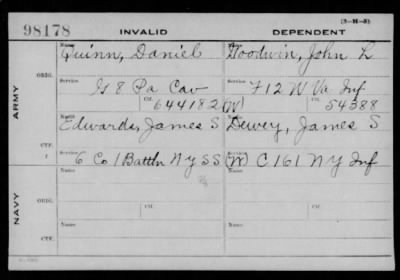 (3-H-5)
98178 INVALID DEPENDENT
Name Quinn, Daniel Name Goodwin, John L
ORIG. Service G 8 Pa Cav Service F 12 W Va Inf
Ctf. 644182 (W) Ctf. 54388
ARMY
Name Edwards, James S Name Dewey, James S
CTF. Service 6 Co 1 Battln N Y S S Service (W) C 161 N Y Inf
Name Name
ORIG. Ctf. Ctf.
NAVY
Name Name
CTF.